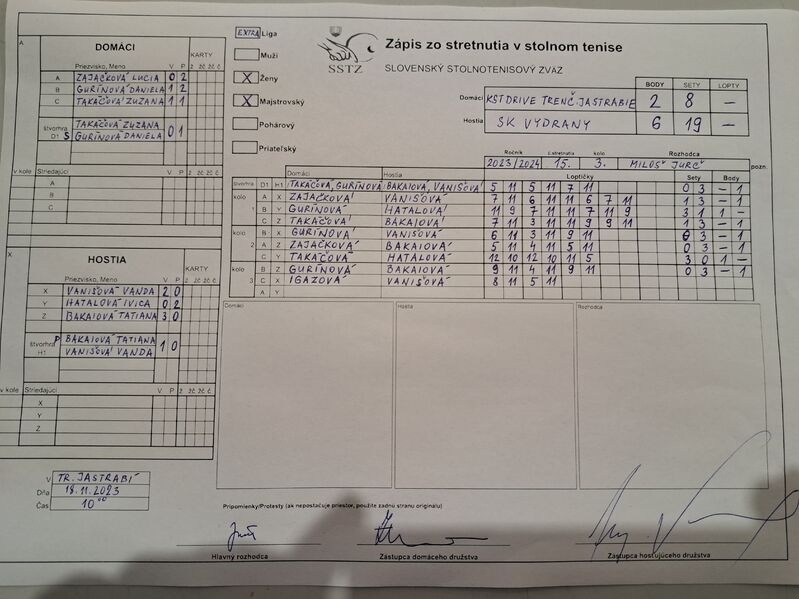 EXTRA Liga
Muži
X Ženy
X Majstrovský
Pohárový
Priateľský
SSTZ
Zápis zo stretnutia v stolnom tenise
SLOVENSKÝ STOLNOTENISOVÝ ZVÄZ
BODY SETY LOPTY
Domáci KST DRIVE TRENČ. JASTRABIE 2 8 –
Hostia SK VYDRANY 6 19 –
Ročník č.stretnutia kolo Rozhodca
2023/2024 15. 3. MILOŠ JURČ pozn.
A
DOMÁCI
KARTY
Priezvisko, Meno V P ž žč žč č
A ZAJAČKOVÁ LUCIA 0 2
B GURÍNOVÁ DANIELA 1 2
C TAKÁČOVÁ ZUZANA 1 1
štvorhra D1 S TAKÁČOVÁ ZUZANA 0 1
GURÍNOVÁ DANIELA
v kole Striedajúci V P ž žč žč č
A
B
C
X
HOSTIA
KARTY
Priezvisko, Meno V P ž žč žč č
X VANIŠOVÁ VANDA 2 0
Y HATALOVÁ IVICA 0 2
Z BAKAIOVÁ TATIANA 3 0
štvorhra H1 P BAKAIOVÁ TATIANA 1 0
VANIŠOVÁ VANDA
v kole Striedajúci V P ž žč žč č
X
Y
Z
Domáci Hostia Loptičky Sety Body
štvorhra D1 H1 TAKÁČOVÁ, GURÍNOVÁ BAKAIOVÁ, VANIŠOVÁ 5 11 5 11 7 11 0 3 – 1
kolo A X ZAJAČKOVÁ VANIŠOVÁ 7 11 6 11 11 6 7 11 1 3 – 1
1 B Y GURÍNOVÁ HATALOVÁ 11 9 7 11 11 7 11 9 3 1 1 –
C Z TAKÁČOVÁ BAKAIOVÁ 7 11 3 11 11 9 9 11 1 3 – 1
kolo B X GURÍNOVÁ VANIŠOVÁ 6 11 3 11 9 11 0 3 – 1
2 A Z ZAJAČKOVÁ BAKAIOVÁ 5 11 4 11 5 11 0 3 – 1
C Y TAKÁČOVÁ HATALOVÁ 12 10 12 10 11 5 3 0 1 –
kolo B Z GURÍNOVÁ BAKAIOVÁ 9 11 4 11 9 11 0 3 – 1
3 C X IGAZOVÁ VANIŠOVÁ 8 11 5 11
A Y
Domáci Hostia Rozhodca
V TR. JASTRABÍ
Dňa 18.11.2023
Čas 10 00
Pripomienky/Protesty (ak nepostačuje priestor, použite zadnú stranu originálu)
Hlavný rozhodca Zástupca domáceho družstva Zástupca hosťujúceho družstva